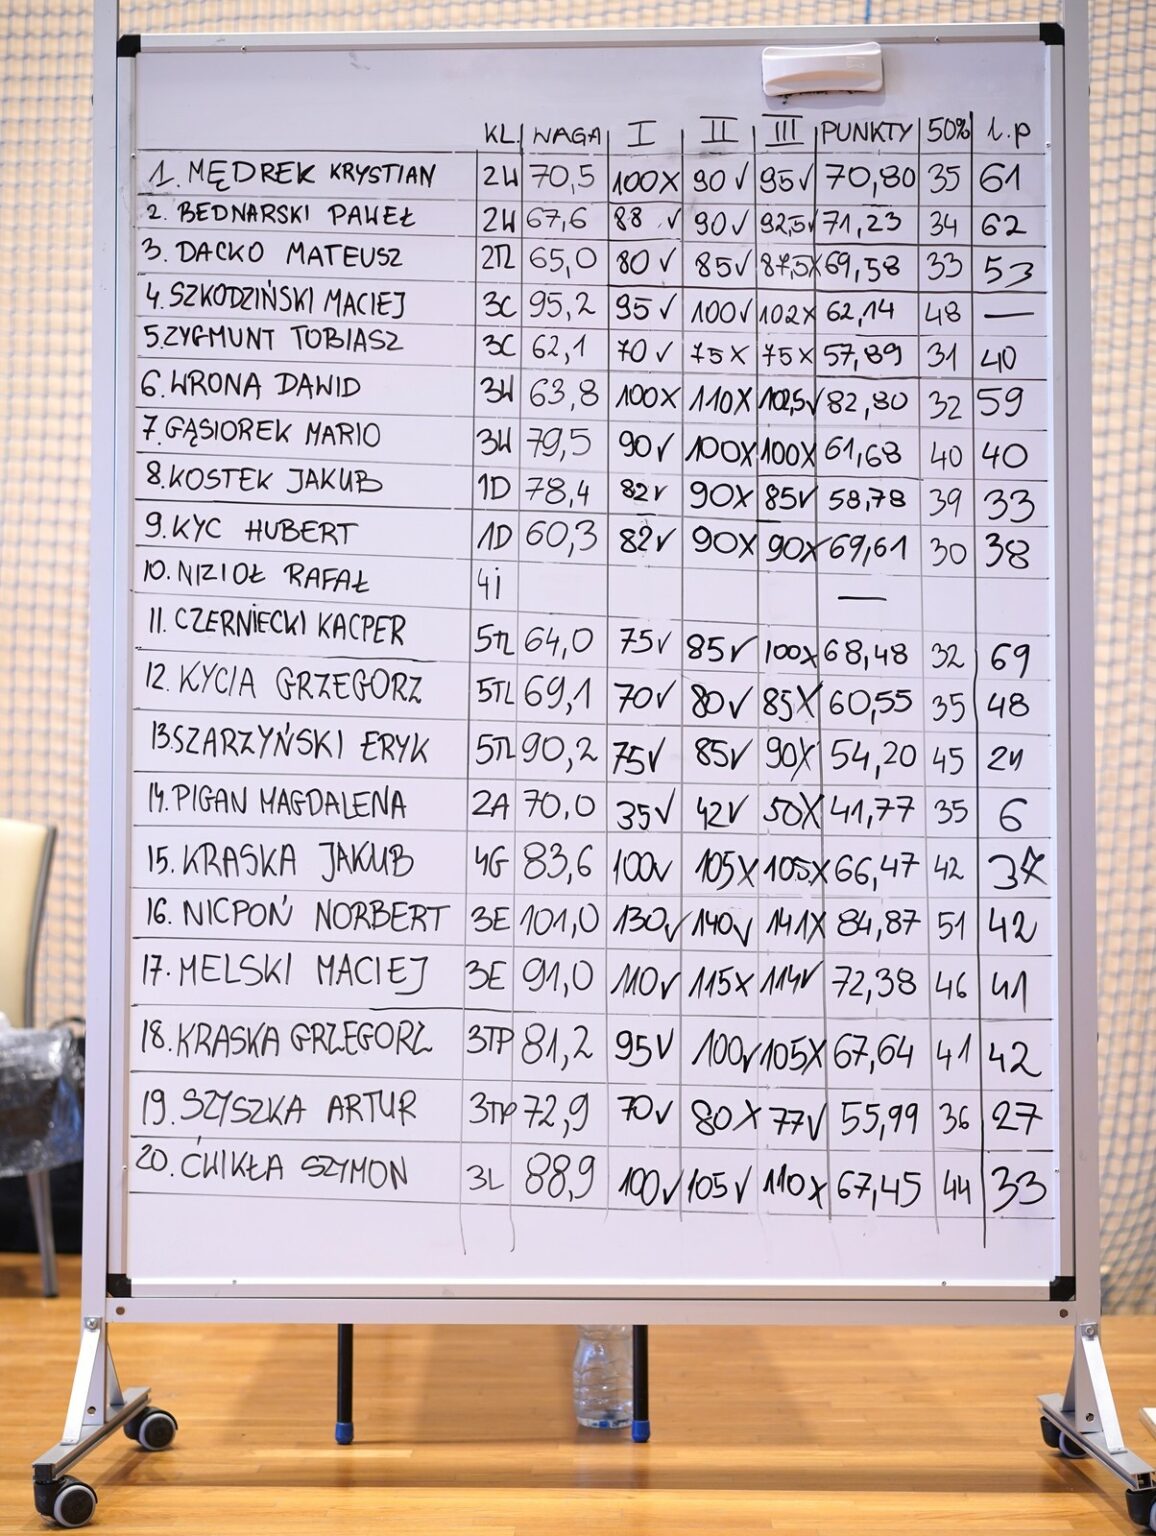 KL. WAGA I II III PUNKTY 50% L.P
1. MĘDREK KRYSTIAN 2W 70,5 100X 90√ 95√ 70,80 35 61
2. BEDNARSKI PAWEŁ 2W 67,6 88√ 90√ 92,5√ 71,23 34 62
3. DACKO MATEUSZ 2TL 65,0 80√ 85√ 87,5X 69,58 33 53
4. SZKODZIŃSKI MACIEJ 3C 95,2 95√ 100√ 102X 62,14 48 —
5. ZYGMUNT TOBIASZ 3C 62,1 70√ 75X 75X 57,89 31 40
6. WRONA DAWID 3W 63,8 100X 110X 102,5√ 82,80 32 59
7. GĄSIOREK MARIO 3W 79,5 90√ 100X 100X 61,68 40 40
8. KOSTEK JAKUB 1D 78,4 82√ 90X 85√ 58,78 39 33
9. KYC HUBERT 1D 60,3 82√ 90X 90X 69,61 30 38
10. NIZIOŁ RAFAŁ 4i —
11. CZERNIECKI KACPER 5TL 64,0 75√ 85√ 100X 68,48 32 69
12. KYCIA GRZEGORZ 5TL 69,1 70√ 80√ 85X 60,55 35 48
13. SZARZYŃSKI ERYK 5TL 90,2 75√ 85√ 90X 54,20 45 21
14. PIGAN MAGDALENA 2A 70,0 35√ 42√ 50X 41,77 35 6
15. KRASKA JAKUB 4G 83,6 100√ 105X 105X 66,47 42 37
16. NICPOŃ NORBERT 3E 101,0 130√ 140√ 141X 84,87 51 42
17. MELSKI MACIEJ 3E 91,0 110√ 115X 114√ 72,38 46 41
18. KRASKA GRZEGORZ 3TP 81,2 95√ 100√ 105X 67,64 41 42
19. SZYSZKA ARTUR 3TP 72,9 70√ 80X 77√ 55,99 36 27
20. ĆWIKŁA SZYMON 3L 88,9 100√ 105√ 110X 67,45 44 33